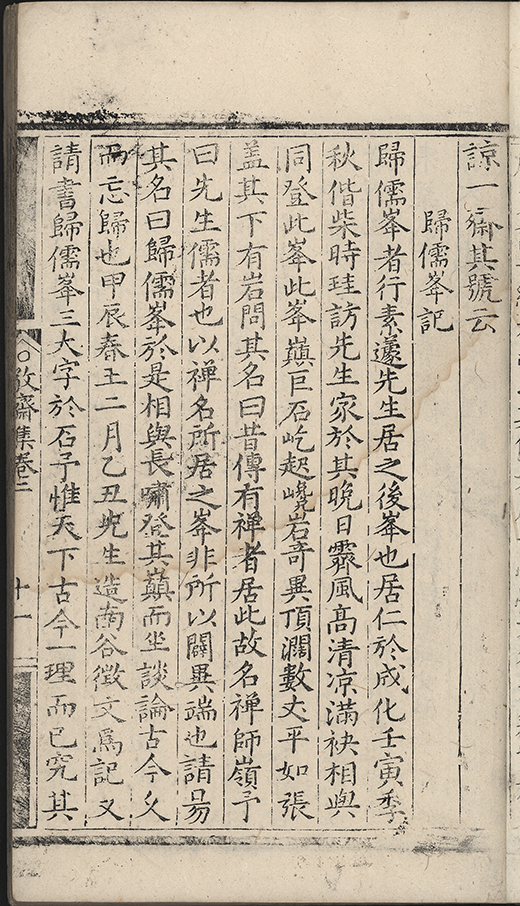 諒一齋其號云
歸儒峯記
歸儒峯者行素蘧先生居之後峯也居仁於成化壬寅季
秋偕柴時珪訪先生家於其晩日霽風高清凉滿袂相與
同登此峯此峯巔巨石屹起巉岩竒異頂濶數丈平如張
盖其下有岩問其名曰昔傳有禅者居此故名禅師嶺予
曰先生儒者也以禅名所居之峯非所以闢異端也請昜
其名曰歸儒峯於是相與長嘯登其巔而坐談論古今乆
而忘歸也甲辰春王二月乙丑先生造南谷徵文爲記又
請書歸儒峯三大字於石予惟天下古今一理而已究其
敬齋集卷二
十一